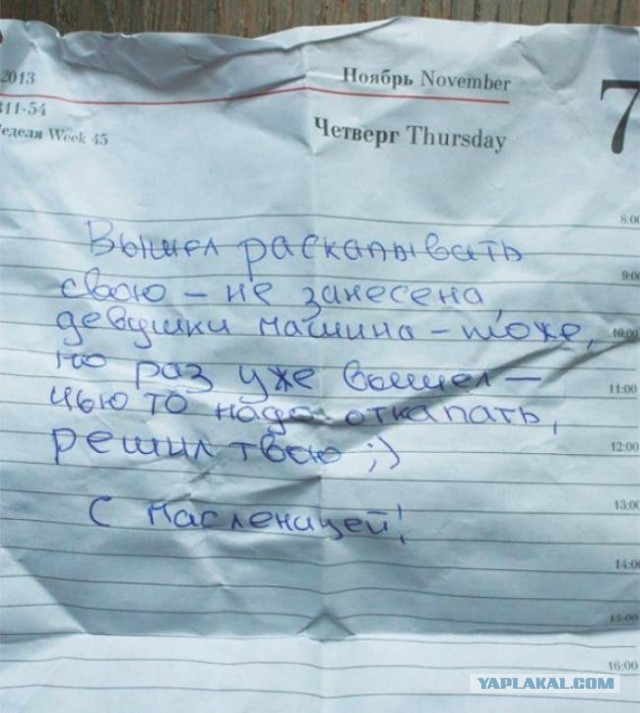 2013
Ноябрь November
7
311-54
Неделя Week 45
Четверг Thursday
8:00
Вышел раскапывать
9:00
свою – не занесена,
девушки машина – тоже,
10:00
но раз уже вышел –
11:00
чью то надо откапать,
12:00
решил твою ;)
13:00
С Масленицей!
14:00
15:00
16:00
YAPLAKAL.COM